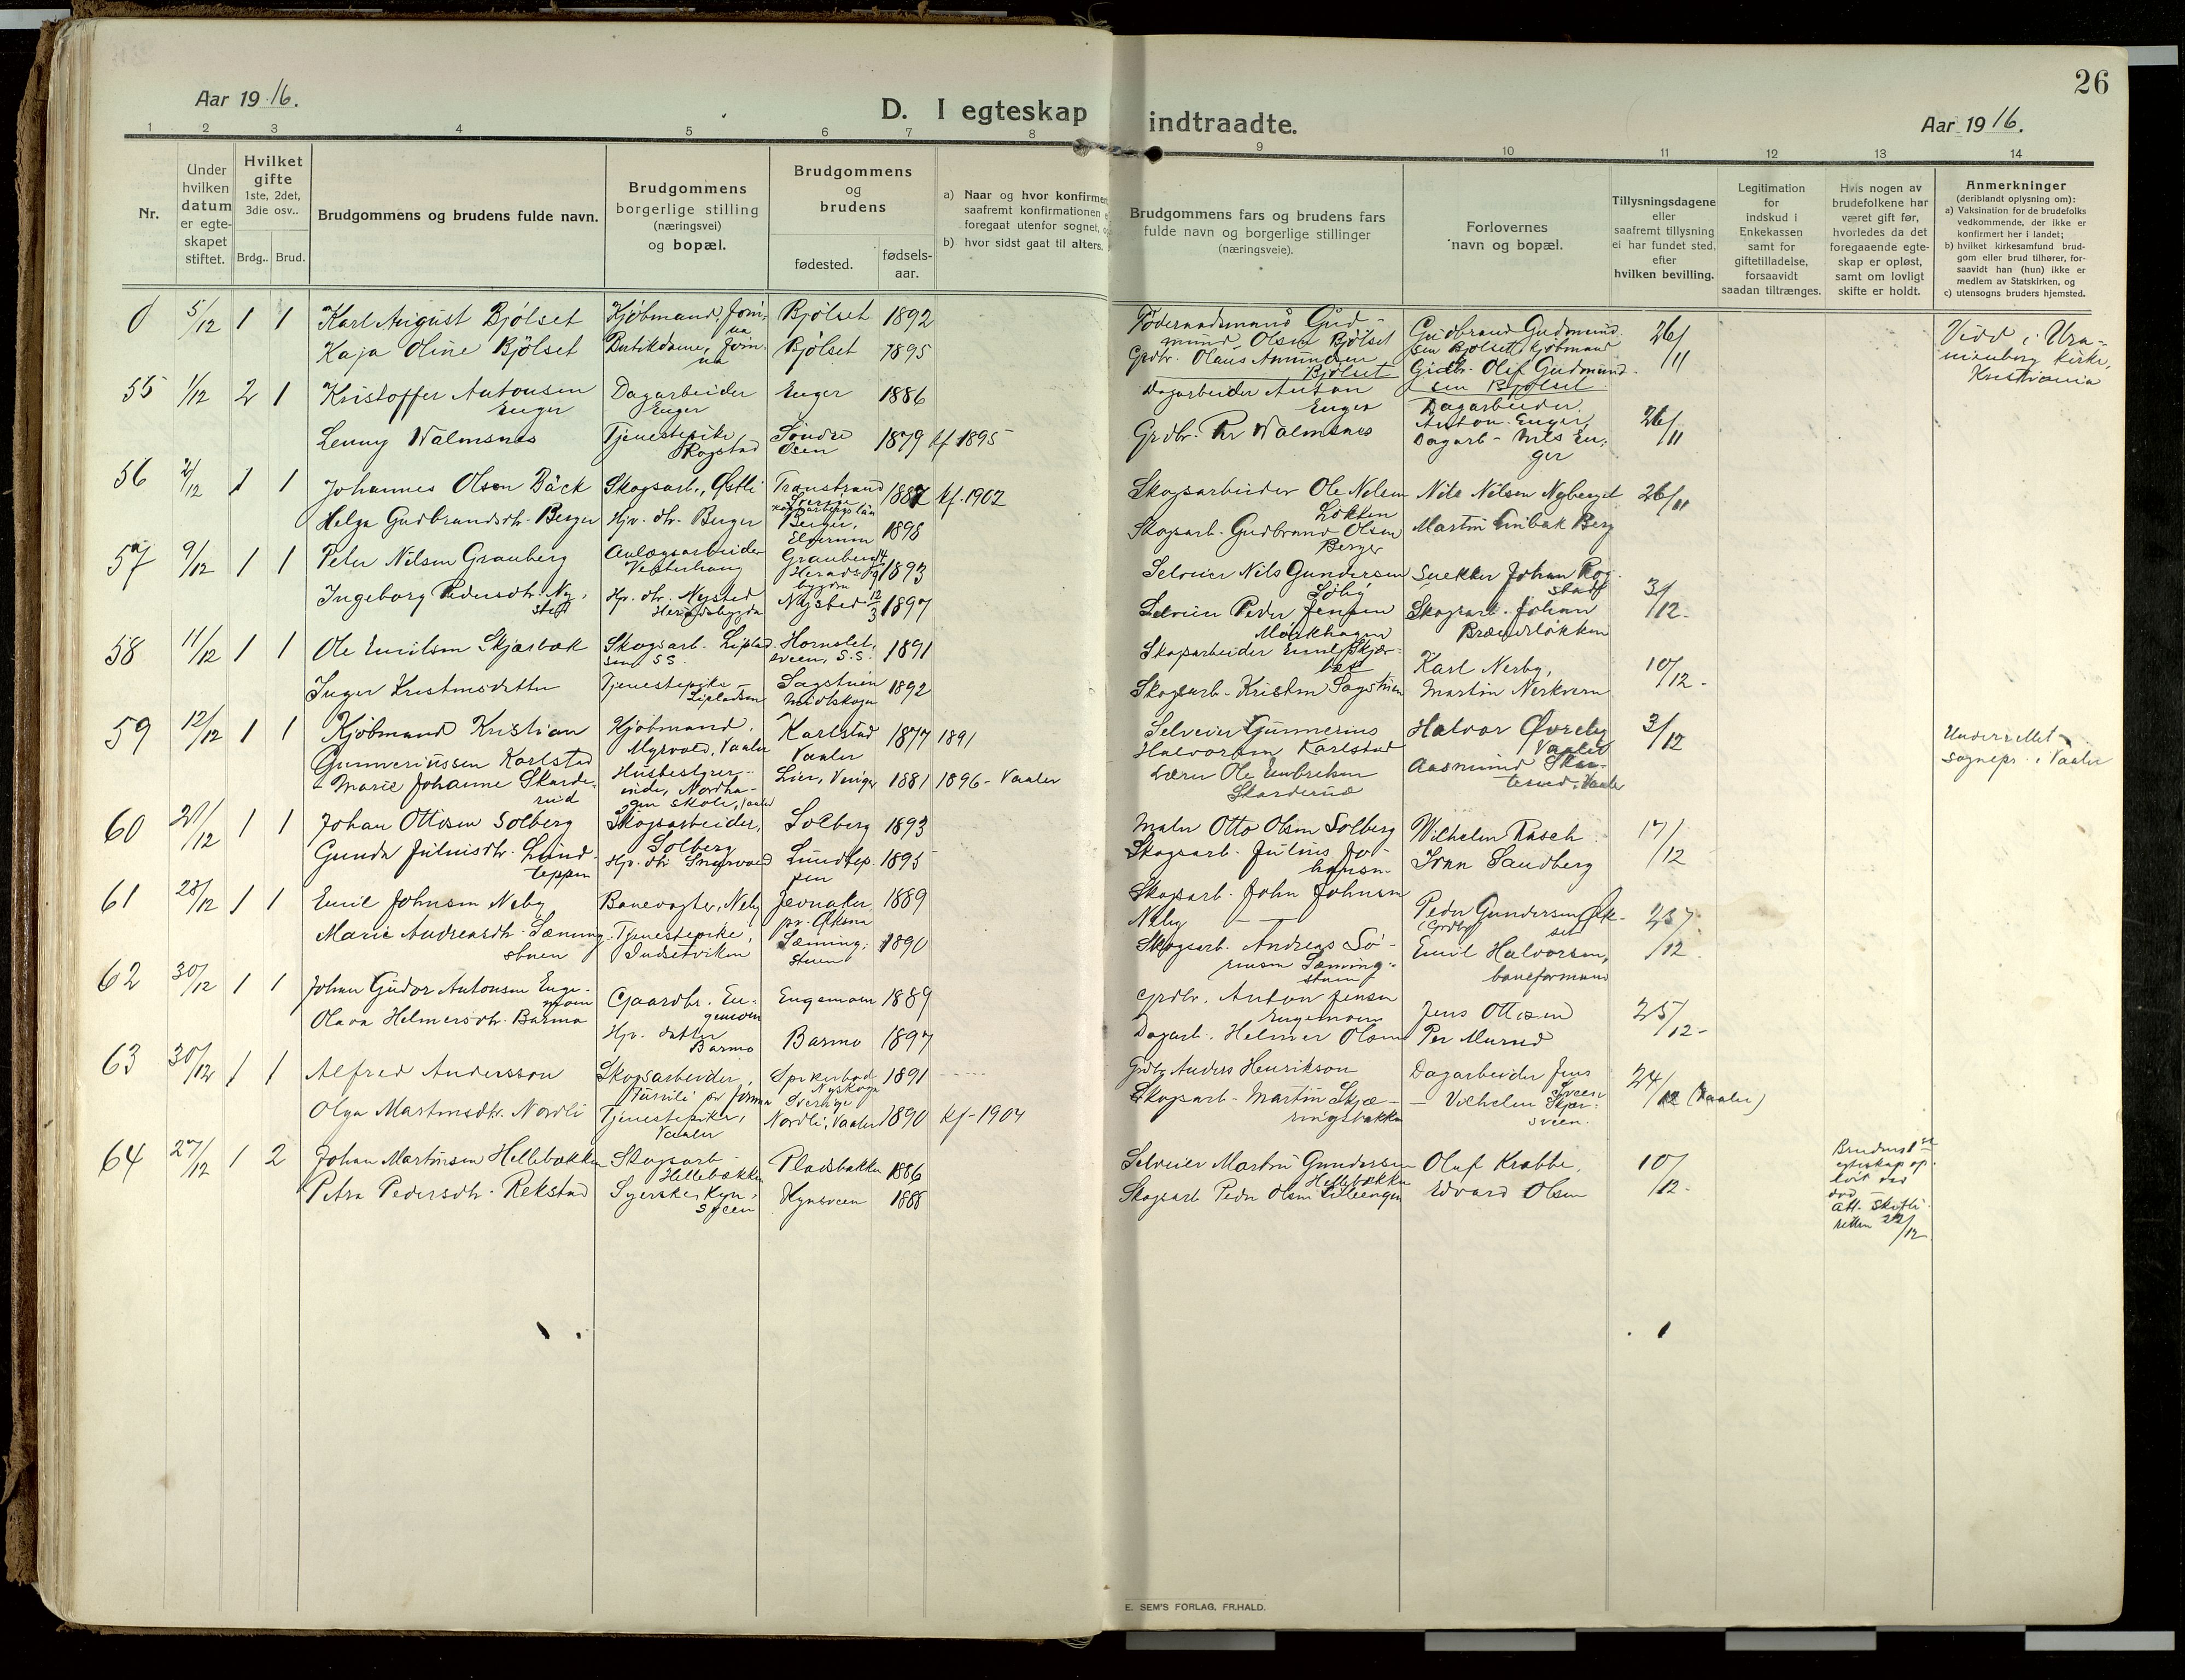 26
Aar 1916.
D. I egteskap indtraadte.
Aar 1916.
1 2 3 4 5 6 7 8 9 10 11 12 13 14
Nr.
Under hvilken datum er egteskapet stiftet.
Hvilket gifte 1ste, 2det, 3die osv..
Brdg.. Brud.
Brudgommens og brudens fulde navn.
Brudgommens borgerlige stilling (næringsvei) og bopæl.
Brudgommens og brudens
fødested.
fødsels-aar.
a) Naar og hvor konfirmert
saafremt konfirmationen
foregaat utenfor sognet,
b) hvor sidst gaat til alters.
Brudgommens fars og brudens fars
fulde navn og borgerlige stillinger
(næringsveie).
Forlovernes
navn og bopæl.
Tillysningsdagene
eller
saafremt tillysning
ei har fundet sted,
efter
hvilken bevilling.
Legitimation
for
indskud i
Enkekassen
samt for
giftetilladelse,
forsaavidt
saadan tiltrænges.
Hvis nogen av
brudefolkene har
været gift før,
hvorledes da det
foregaaende egte-
skap er opløst,
samt om lovligt
skifte er holdt.
Anmerkninger
(deriblandt oplysning om):
a) Vaksination for de brudefolks
vedkommende, der ikke er
konfirmert her i landet;
b) hvilket kirkesamfund brud-
gom eller brud tilhører, for-
saavidt han (hun) ikke er
medlem av Statskirken, og
c) utensogns bruders hjemsted.
0 5/12 1 1 Karl August Bjölset Kjöbmand, Jömna Bjölset 1892
Kaja Oline Bjölset Butikdame, Jömna Bjölset 1895
Föderaadsmand Gudmund Olsen Bjölset
Grdbr. Olaus Amundsen Bjölset
Gudbrand Gudmundsen Bjölset, Kjöbmand
Grdbr. Olaf Gudmundsen Bjölset
26/11
Viet i Uranienborg kirke, Kristiania
55 1/12 2 1 Kristoffer Antonsen Enger Dagarbeider Enger Enger 1886
Lenny Walmsnes Tjenestepike Rogstad Söndre Osen 1879 kf 1895
Dagarbeider Anton Enger
Grdbr. Per Walmsnes
Dagarbeider Anton Enger,
Dagarb- Nils Enger
26/11
56 2/12 1 1 Johannes Olsen Bäck Skogsarb., Östli Transtrand Sverige Kopparbergs län 1887 kf. 1902
Helga Gudbrandsdtr. Berger Hjv. dtr. Berger Berger, Elverum 1898
Skogsarbeider Ole Nilsen Lökken
Skogsarb. Gudbrand Olsen Berger
Nils Nilsen Nyberget
Martin Berg
26/11
57 9/12 1 1 Peter Nilsen Grauberg Anlægsarbeider Vesterhaug Grauberg Heradsbygden 1893
Ingeborg Pedersdtr. Nysted Hjv. dtr. Nysted Heradsbygda Nysted 12/3 1897
Selveier Nils Gundersen
Selveier Peder Jensen Mörkhagen
Snekker Johan Rogstad
Skogsarb. Johan Brændslökken
3/12-
58 11/12 1 1 Ole Emilsen Skjærbæk Skogsarb. Lipladsen S.S. Hornsletsveen, S.S. 1891
Inger Kristinsdatter Tjenestepike- Lipladsen Sagstuen Midtskogen 1892
Skogsarbeider Emil Skjærbæk
Skogsarb- Kristin Sagstuen
Karl Nerby,
Martin Nerkvern
10/12-
59 12/12 1 1 Kjöbmand Kristian Gunneriussen Karlstad Kjöbmand, Myrvold, Vaaler Karlstad Vaaler 1877 1891
Marie Johanne Skarderud Husbestyrerinde, Nordhagen skole, Vaaler Lier, Vinger 1881 1896- Vaaler
Selveier Gunnerius Halvorsen Karlstad
Lærer Ole Embriksen Skarderud
Halvor Övreby Vaaler
Aasmund Skarderud, Vaaler
3/12
Underrettet sognepr. i Vaaler
60 21/12 1 1 Johan Ottosen Solberg Skogsarbeider, Solberg Solberg 1893
Gunda Juliusdtr. Lundteppen Hjv. dtr. Lundteppen 1895
Maler Otto Olsen Solberg
Skogsarb. Julius Johansen
Wilhelm Rasch
Ivan Sandberg
17/12
61 28/12 1 1 Emil Johnsen Neby Banevogter, Neby Jevnaker 1889
Marie Andreasdtr. Sæmingstuen Tjenestepike, Indsetviken Sæmingstuen 1890
Skogsarb. John Johnsen Neby
Skogsarb. Andreas Sörensen Sæmingstuen
Peder Gundersen (Grdbr)
Emil Halvorsen, baneformand
23/12
62 30/12 1 1 Johan Gudor Antonsen Engemoen Gaardbr. Engemoen Engemoen 1889
Olava Helmersdtr. Barmo Hjv. datter Barmo Barmo 1897
Grdbr. Anton Jensen Engemoen
Dagarb. Helmer Olsen
Jens Ottosen
Per Murud
25/12-
63 30/12 1 1 Alfred Andersson Skogsarbeider, pr Jömna Spikerbod Nyskoga Sverige 1891
Olga Martinsdtr. Nordli Tjenestepike, Vaaler Nordli, Vaaler 1890 kf- 1904
Grdbr Anders Henrikson
Skogsarb- Martin Skjæringsbakken
Dagarbeider Jens Sveen
- Vilhelm Skjærsveen.
24/12 (Vaaler)
64 27/12 1 2 Johan Martinsen Hellebækken Skogsarb- Hellebækken Pladsbakken 1886
Petra Pedersdtr. Rekstad Syerske, Kynsveen Kynsveen 1888
Selveier Martin Gundersen Hellebækken
Skogsarb Peder Olsen Lilleengen
Oluf Krabbe,
Edvard Olsen
10/12-
Brudens 1ste egteskap oplöst ved död- Att. skifteretten 22/12
E. SEM'S FORLAG, FR.HALD.